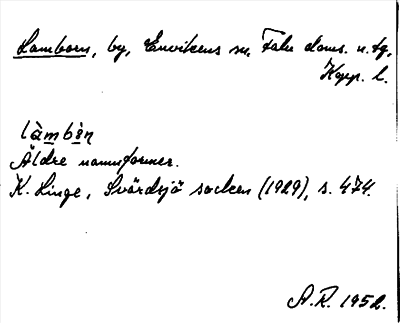 Lamborn, by, Envikens sn, Falu doms. u. tg,
Kopp. l.
làmbòn
Äldre namnformer.
K. Linge, Svärdsjö socken (1929), s. 474.
A.R. 1952.